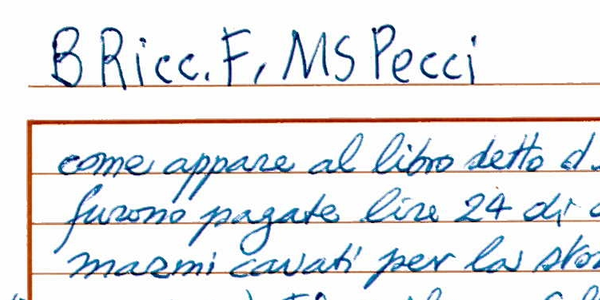 B Ricc. F, MS Pecci
come appare al libro detto d
furono pagate lire 24 di
marmi cavati per la